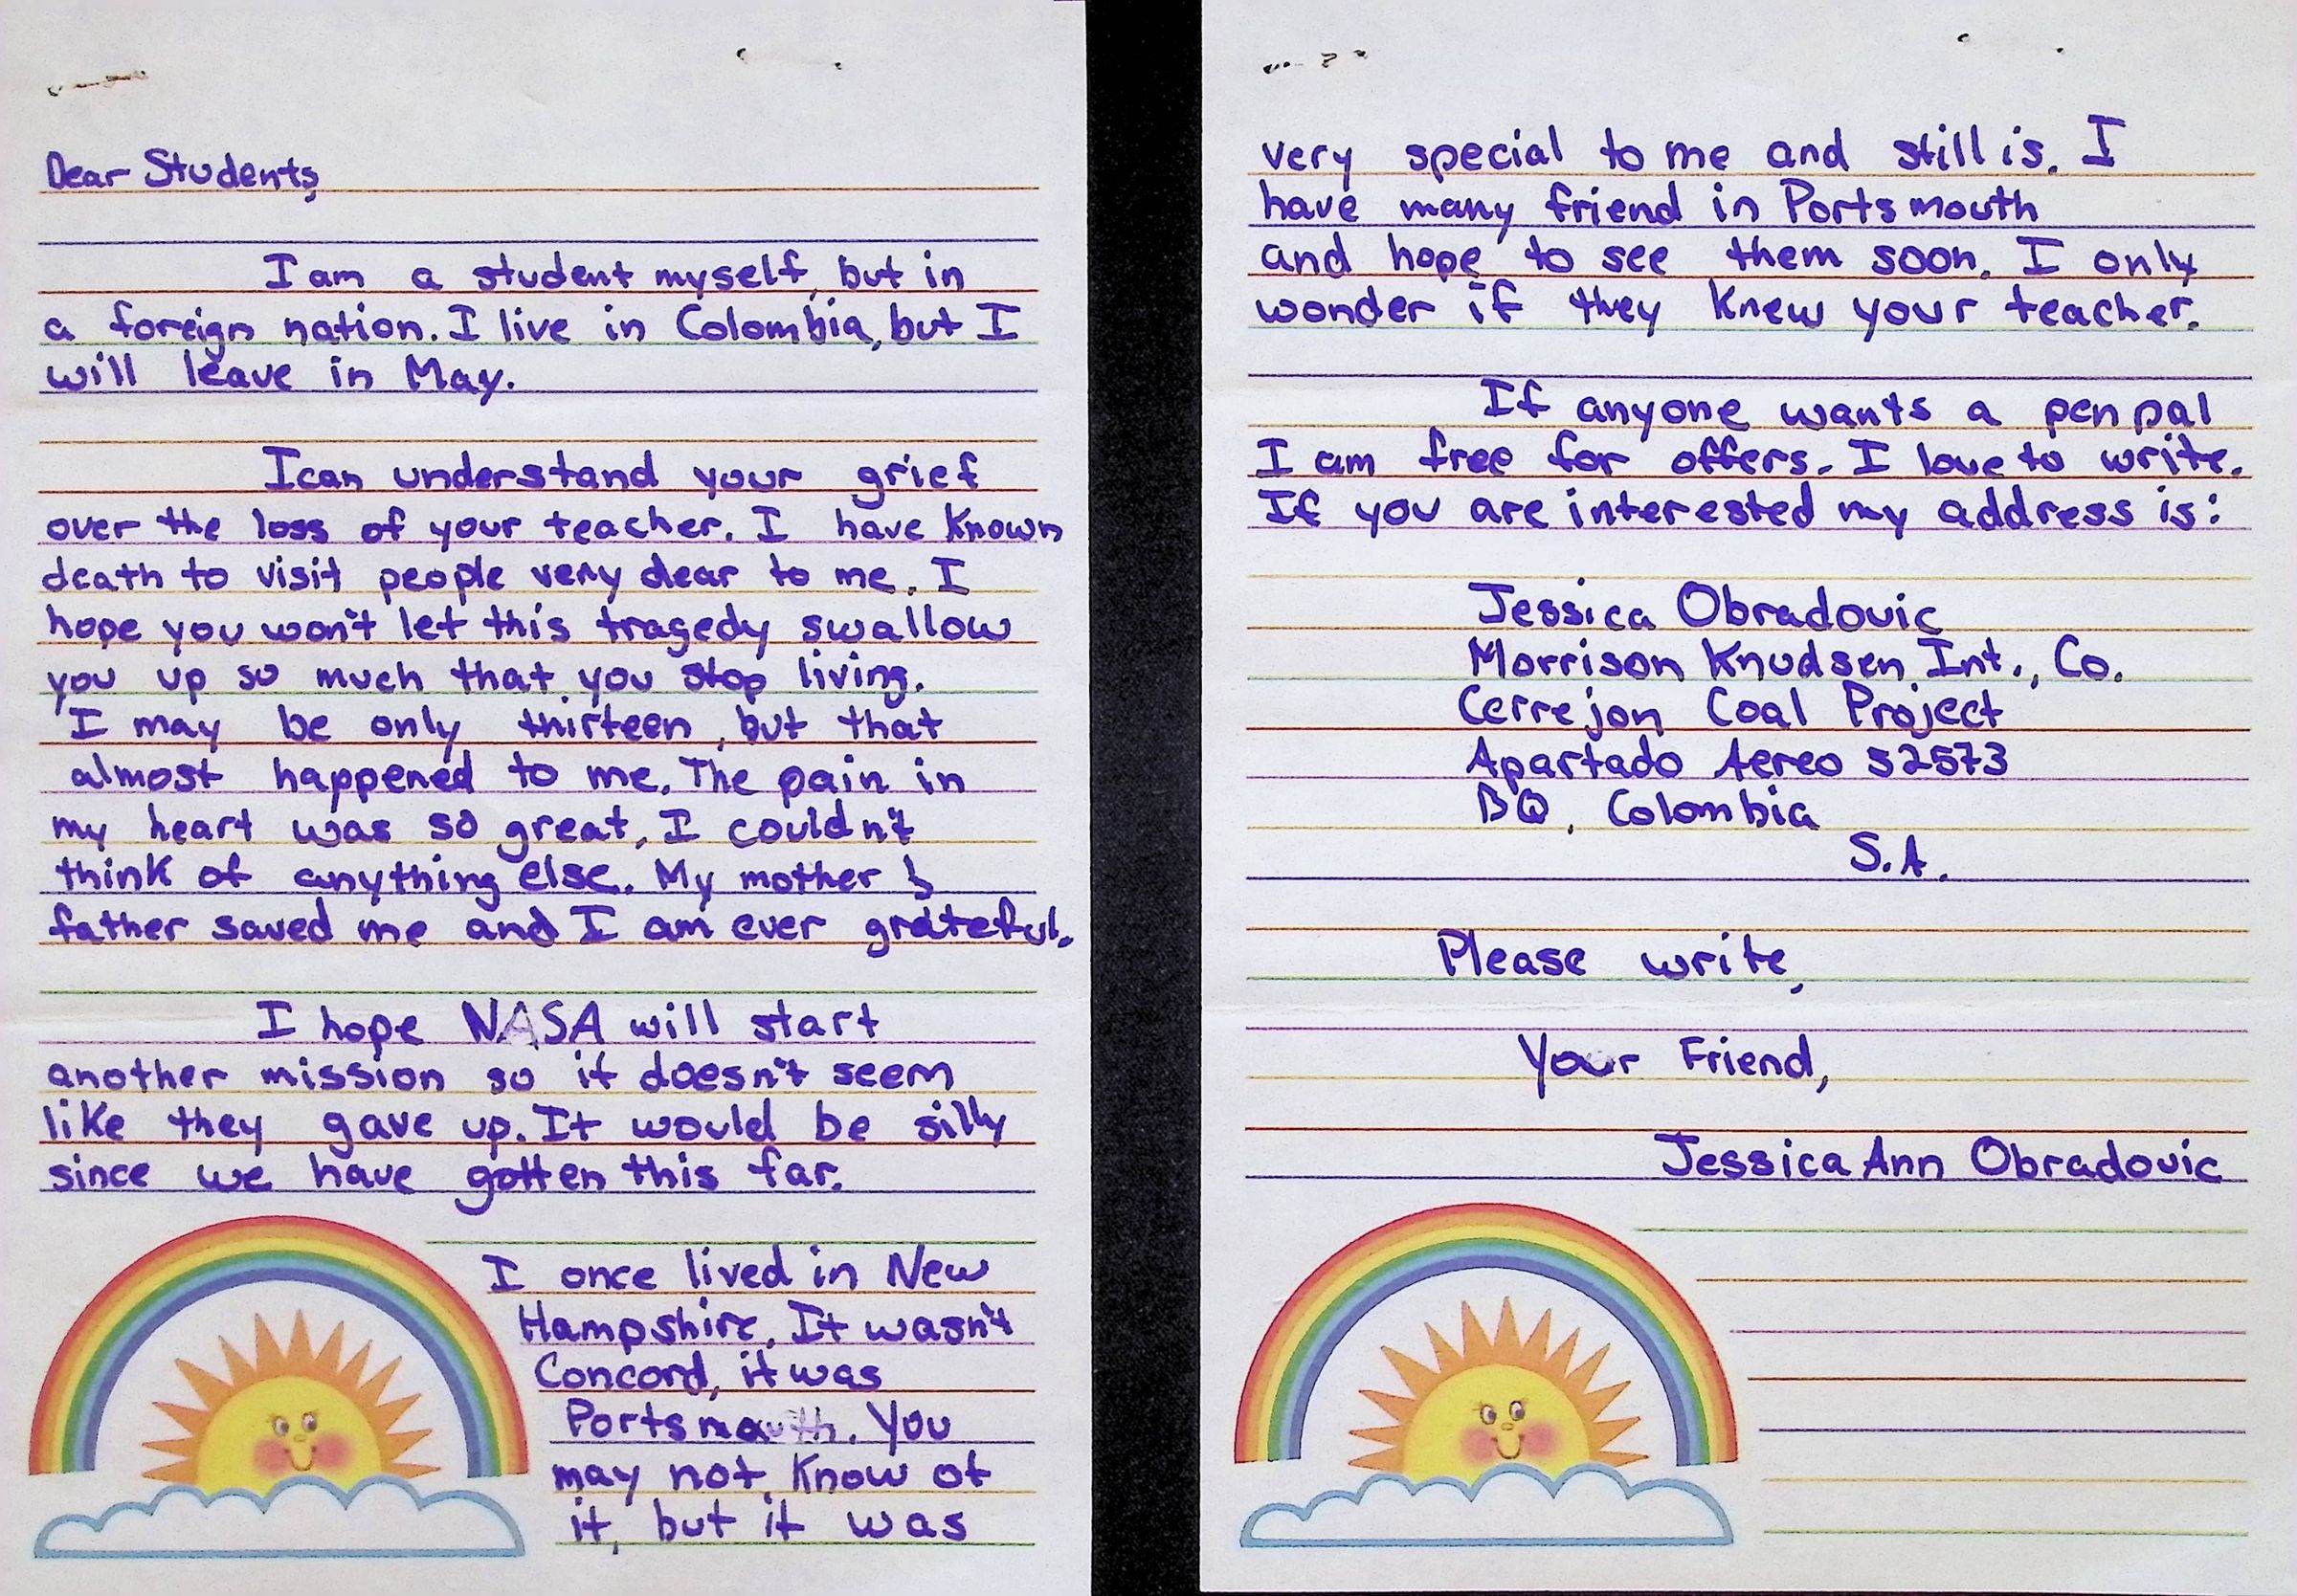 Dear Students,
I am a student myself, but in
a foreign nation. I live in Colombia, but I
will leave in May.
I can understand your grief
over the loss of your teacher. I have known
death to visit people very dear to me. I
hope you won't let this tragedy swallow
you up so much that you stop living.
I may be only thirteen, but that
almost happened to me. The pain in
my heart was so great, I couldn't
think of anything else. My mother &
father saved me and I am ever grateful.
I hope NASA will start
another mission so it doesn't seem
like they gave up. It would be silly
since we have gotten this far.
I once lived in New
Hampshire. It wasn't
Concord, it was
Portsmouth. You
may not know of
it, but it was
very special to me and still is. I
have many friend in Portsmouth
and hope to see them soon. I only
wonder if they knew your teacher.
If anyone wants a pen pal
I am free for offers. I love to write.
If you are interested my address is:
Jessica Obradovic
Morrison Knudsen Int., Co.
Cerrejon Coal Project
Apartado Aereo 52573
BQ, Colombia
S.A.
Please write,
Your Friend,
Jessica Ann Obradovic